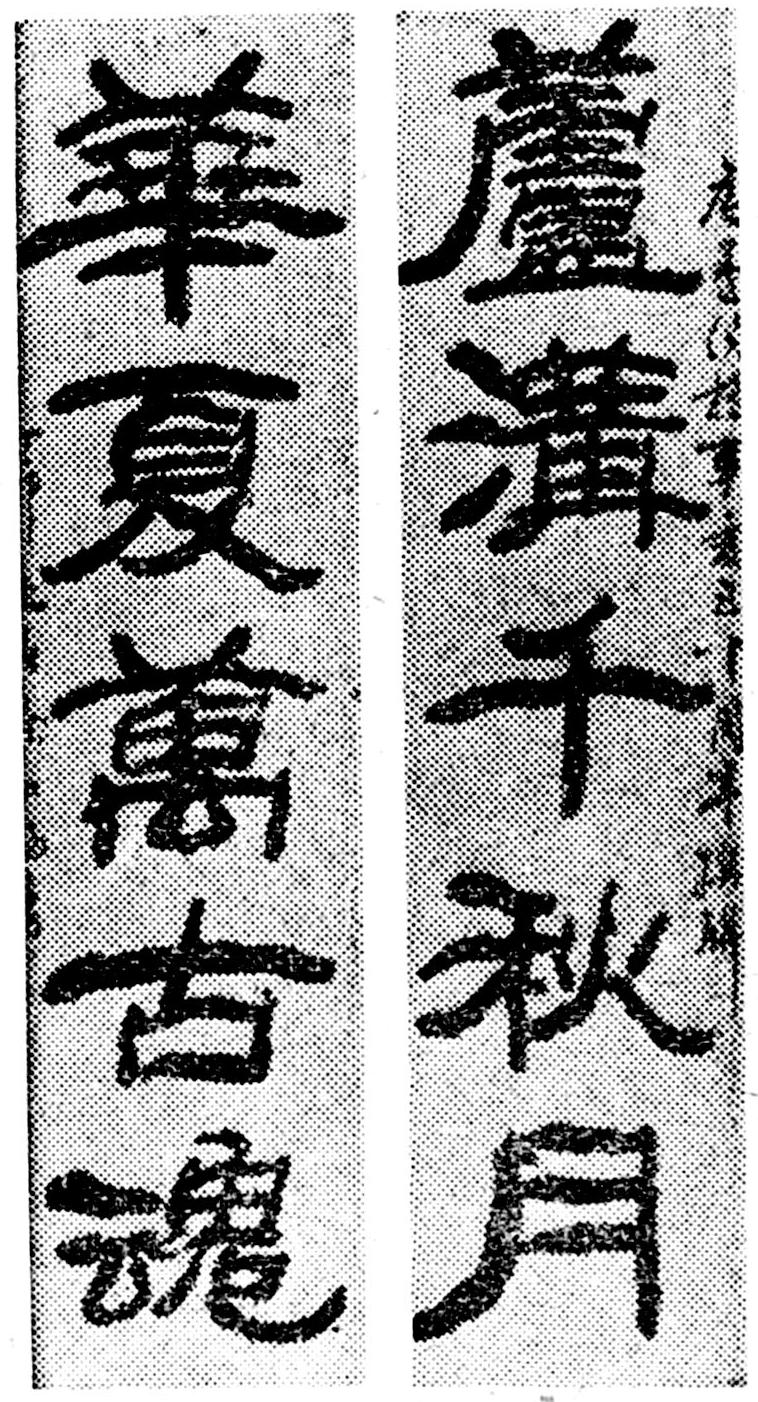 蘆溝千秋月
華夏萬古魂